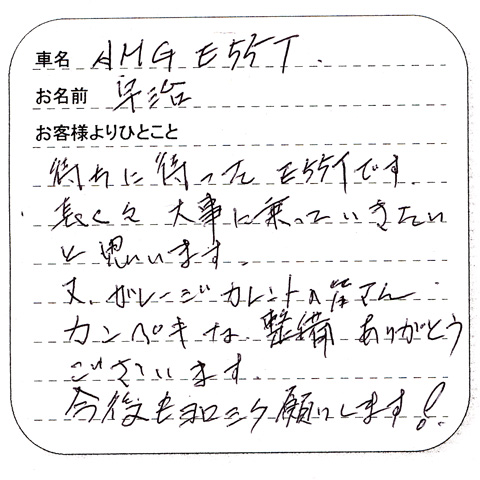 車名 AMG E55T.
お名前 早治
お客様よりひとこと
待ちに待った E55Tです.
長く々 大事に乗っていきたい
と思います.
又、ガレージカレントの皆さん
カンペキな整備ありがとう
ございます.
今後もヨロシク願いします!